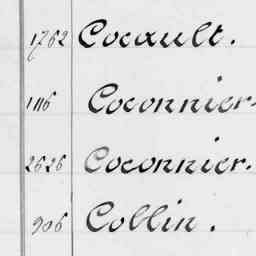 1762 Cocault.
1116 Coconnier.
2626 Coconnier.
906 Collin.